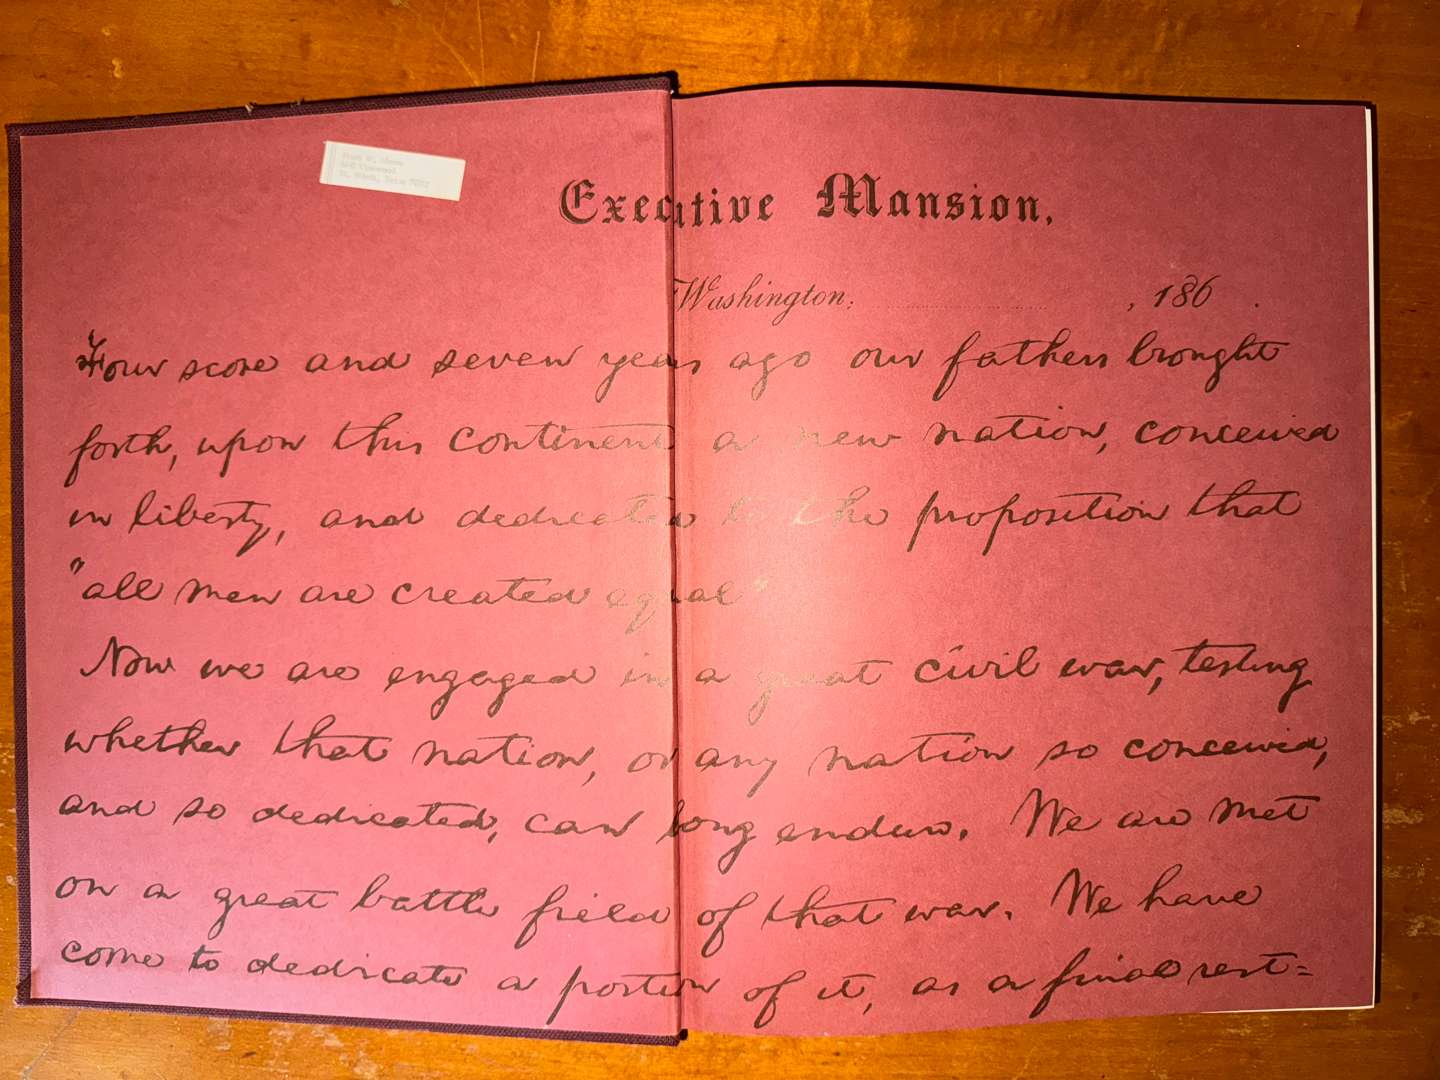 Executive Mansion,
Washington, , 186 .
Four score and seven years ago our fathers brought
forth, upon this continent a new nation, conceived
in liberty, and dedicated to the proposition that
"all men are created equal"
Now we are engaged in a great civil war, testing
whether that nation, or any nation so conceived,
and so dedicated, can long endure. We are met
on a great battle field of that war. We have
come to dedicate a portion of it, as a final rest=